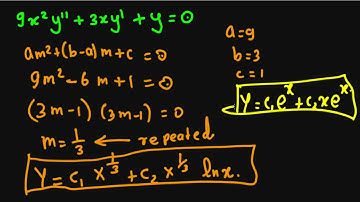 9x²y'' + 3xy' + y = 0
am² + (b-a)m + c = 0
9m² - 6m + 1 = 0
(3m-1) (3m-1) = 0
m = 1/3 ← repeated
Y = c₁ x^(1/3) + c₂ x^(1/3) ln x.
a = 9
b = 3
c = 1
Y = c₁e^x + c₂xe^x